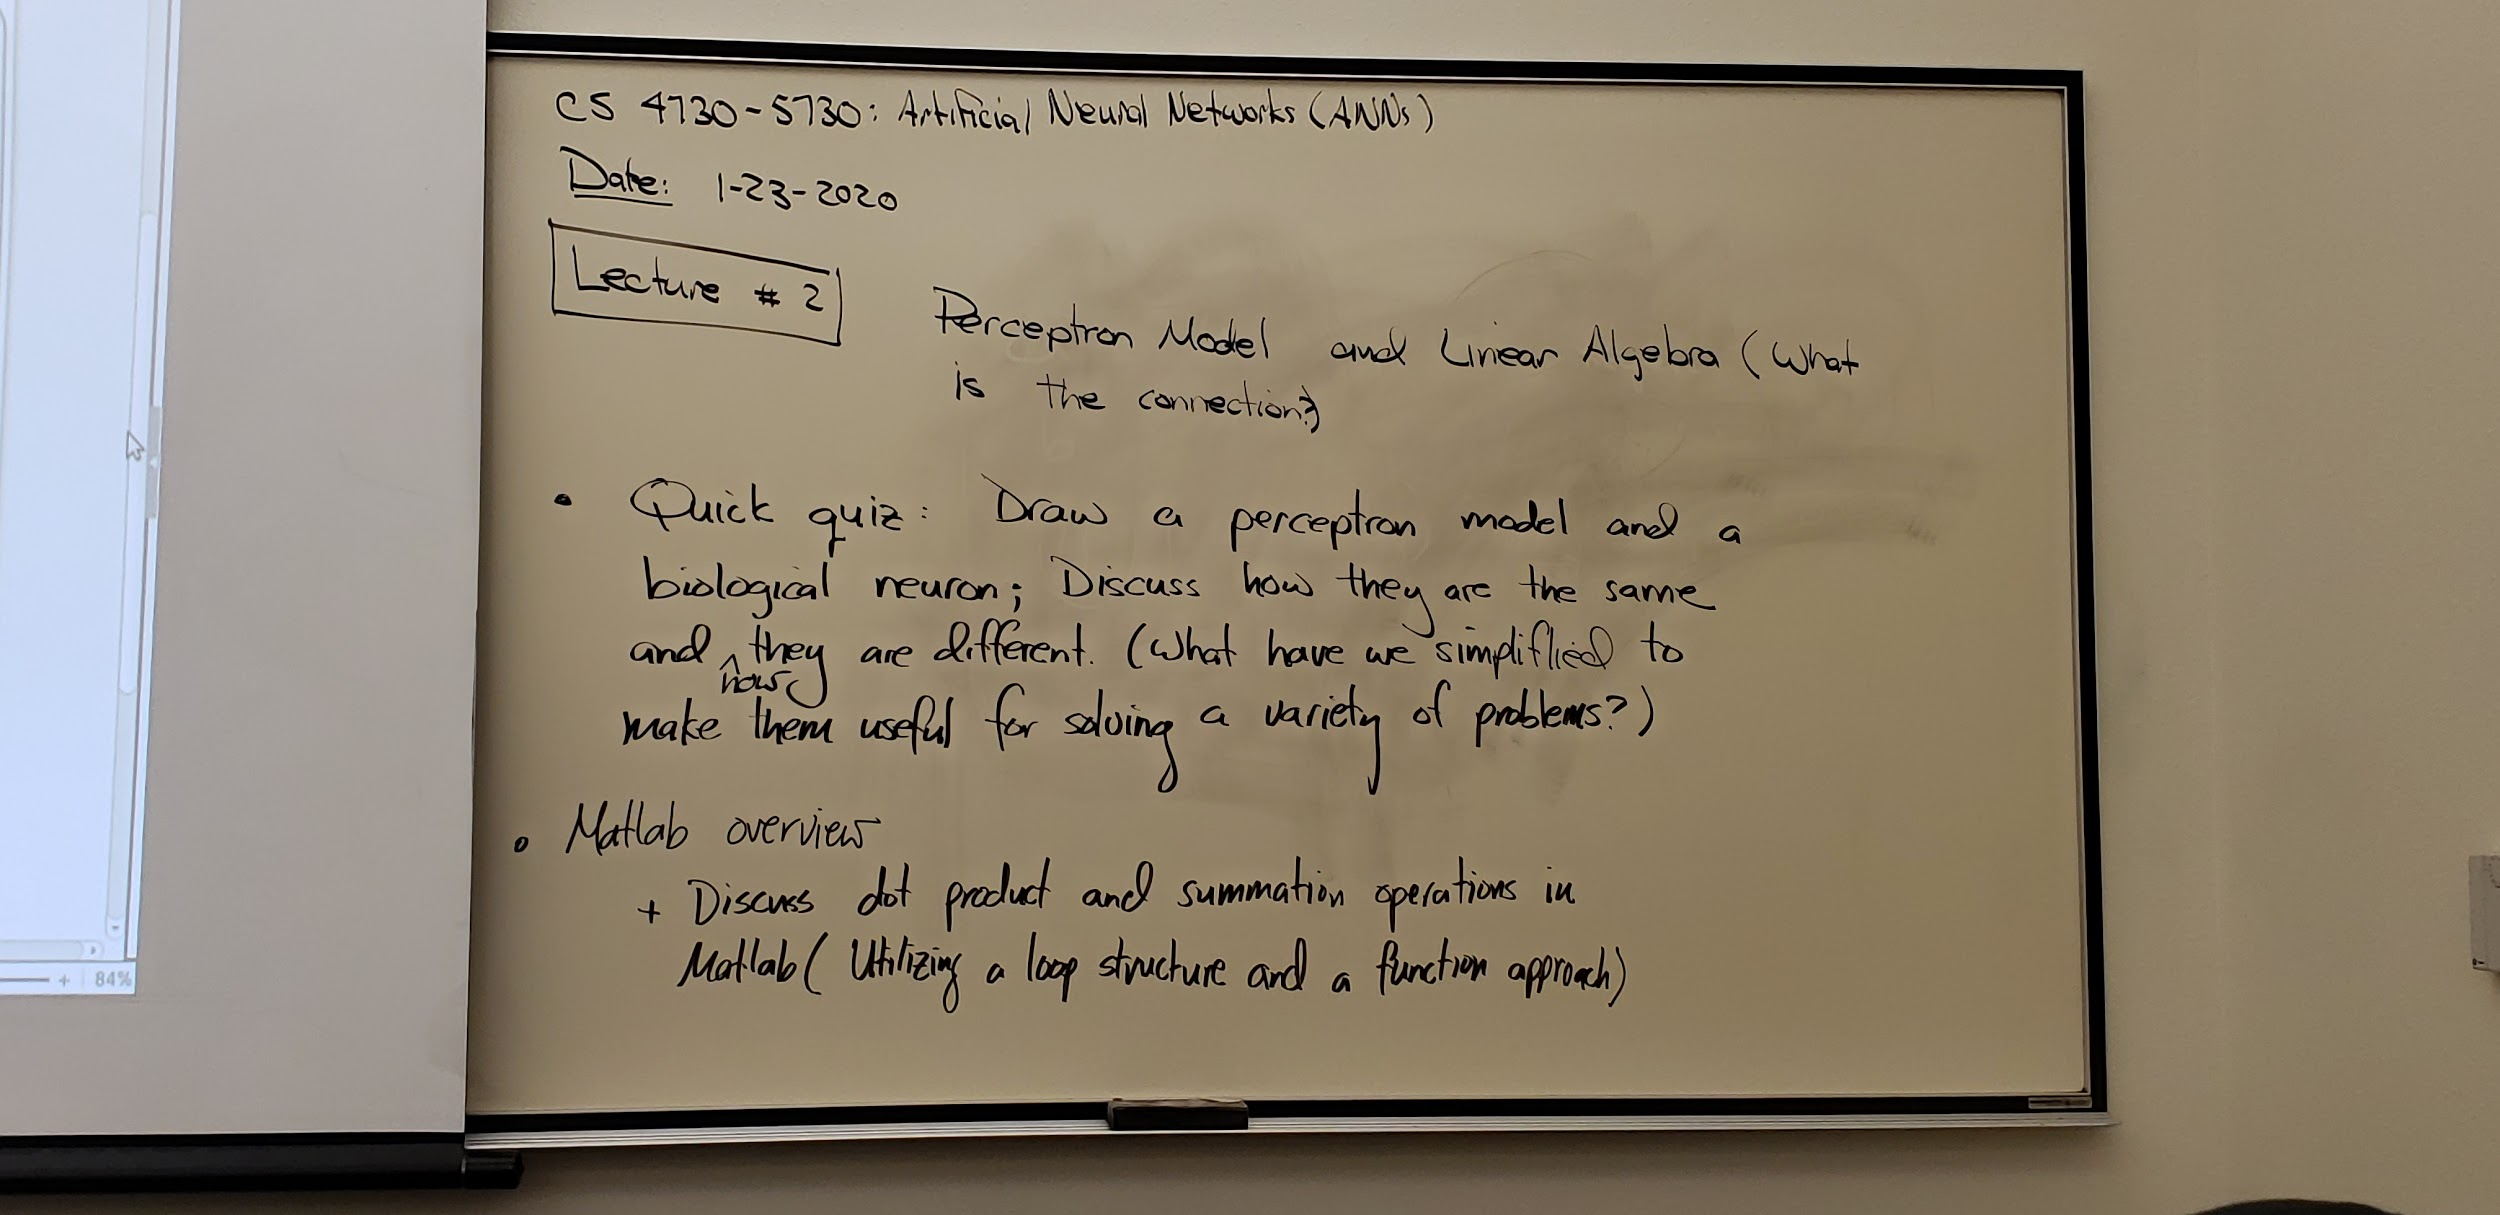 CS 4730-5730: Artificial Neural Networks (ANNs)
Date: 1-23-2020
Lecture # 2
Perceptron Model and Linear Algebra (What
is the connection?)
• Quick quiz: Draw a perceptron model and a
biological neuron; Discuss how they are the same
and ^ they are different. (What have we simplified to
how
make them useful for solving a variety of problems?)
• Matlab overview
+ Discuss dot product and summation operations in
Matlab (Utilizing a loop structure and a function approach)
+ 84%